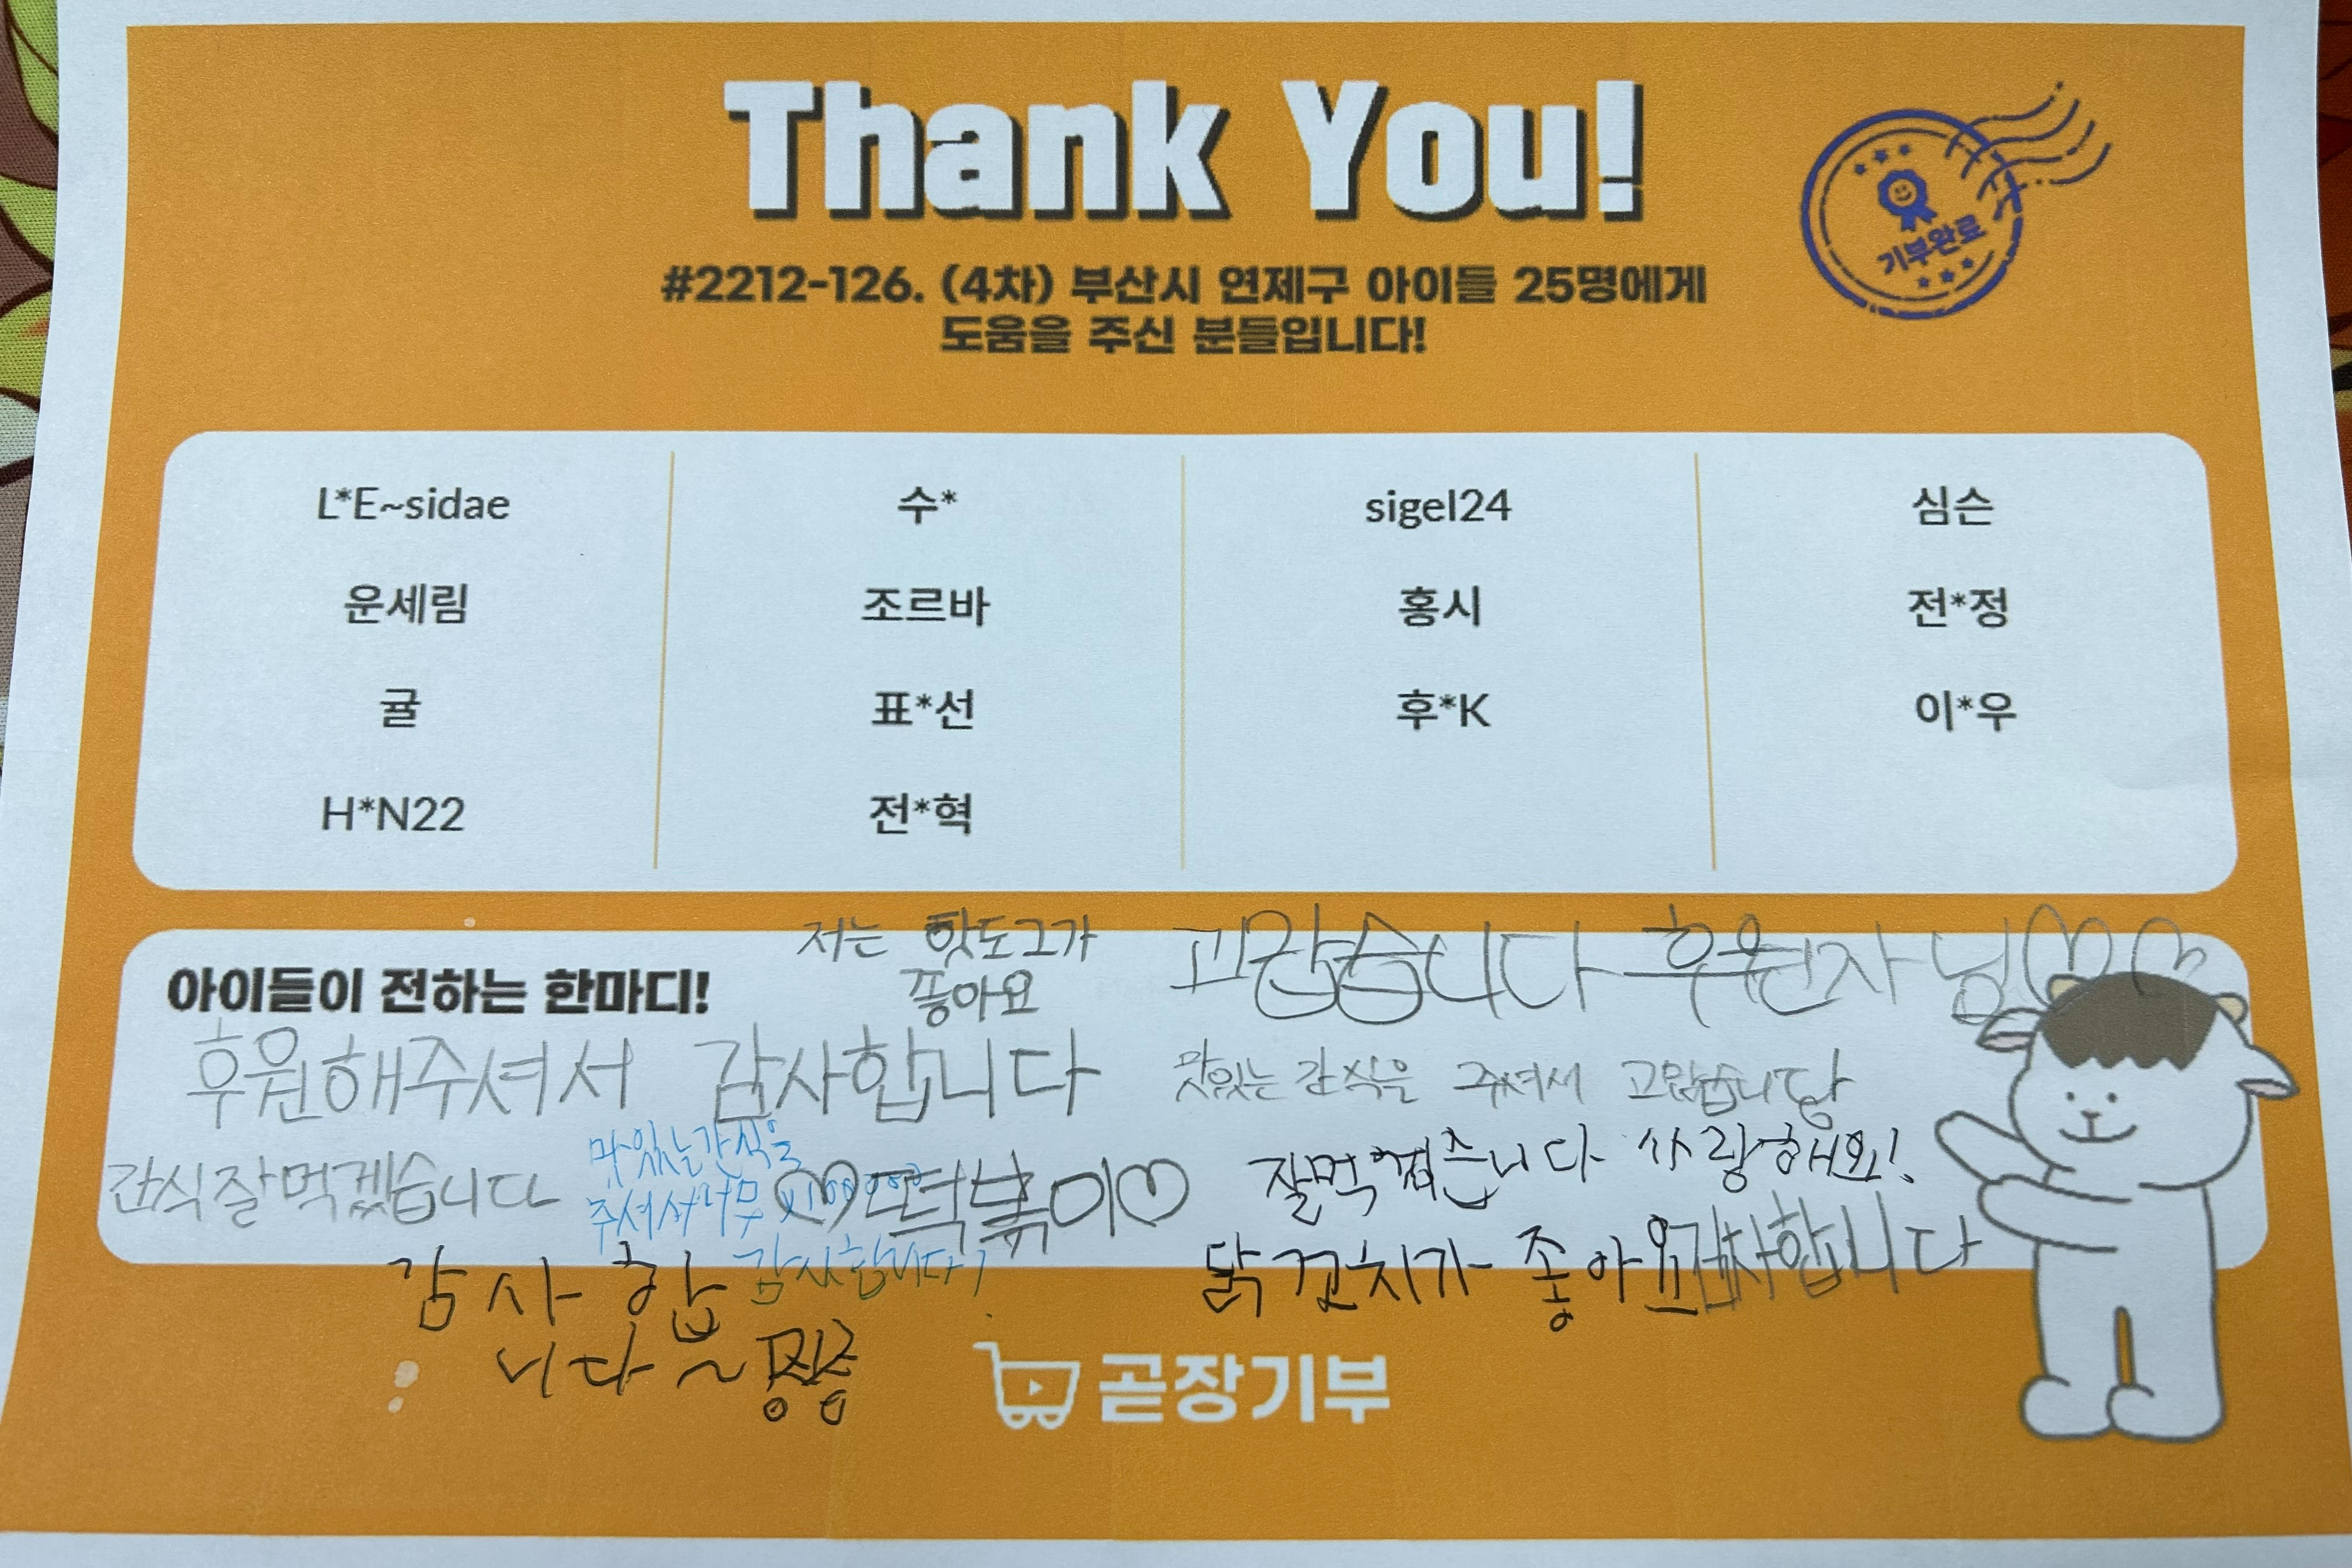 Thank You!
기부완료
#2212-126. (4차) 부산시 연제구 아이들 25명에게
도움을 주신 분들입니다!
L*E~sidae 수* sigel24 심슨
운세림 조르바 홍시 전*정
귤 표*선 후*K 이*우
H*N22 전*혁
아이들이 전하는 한마디!
저는 핫도그가
좋아요
고맙습니다 후원자님♡♡
후원해주셔서 감사합니다
맛있는 간식을 주셔서 고맙습니당
간식잘먹겠습니다
맛있는간식을
주셔서너무
감사합니다!
♡떡볶이♡
잘먹겠습니다 사랑해요!
닭꼬치가 좋아요
감사합니다
감사합
니다~
곧장기부